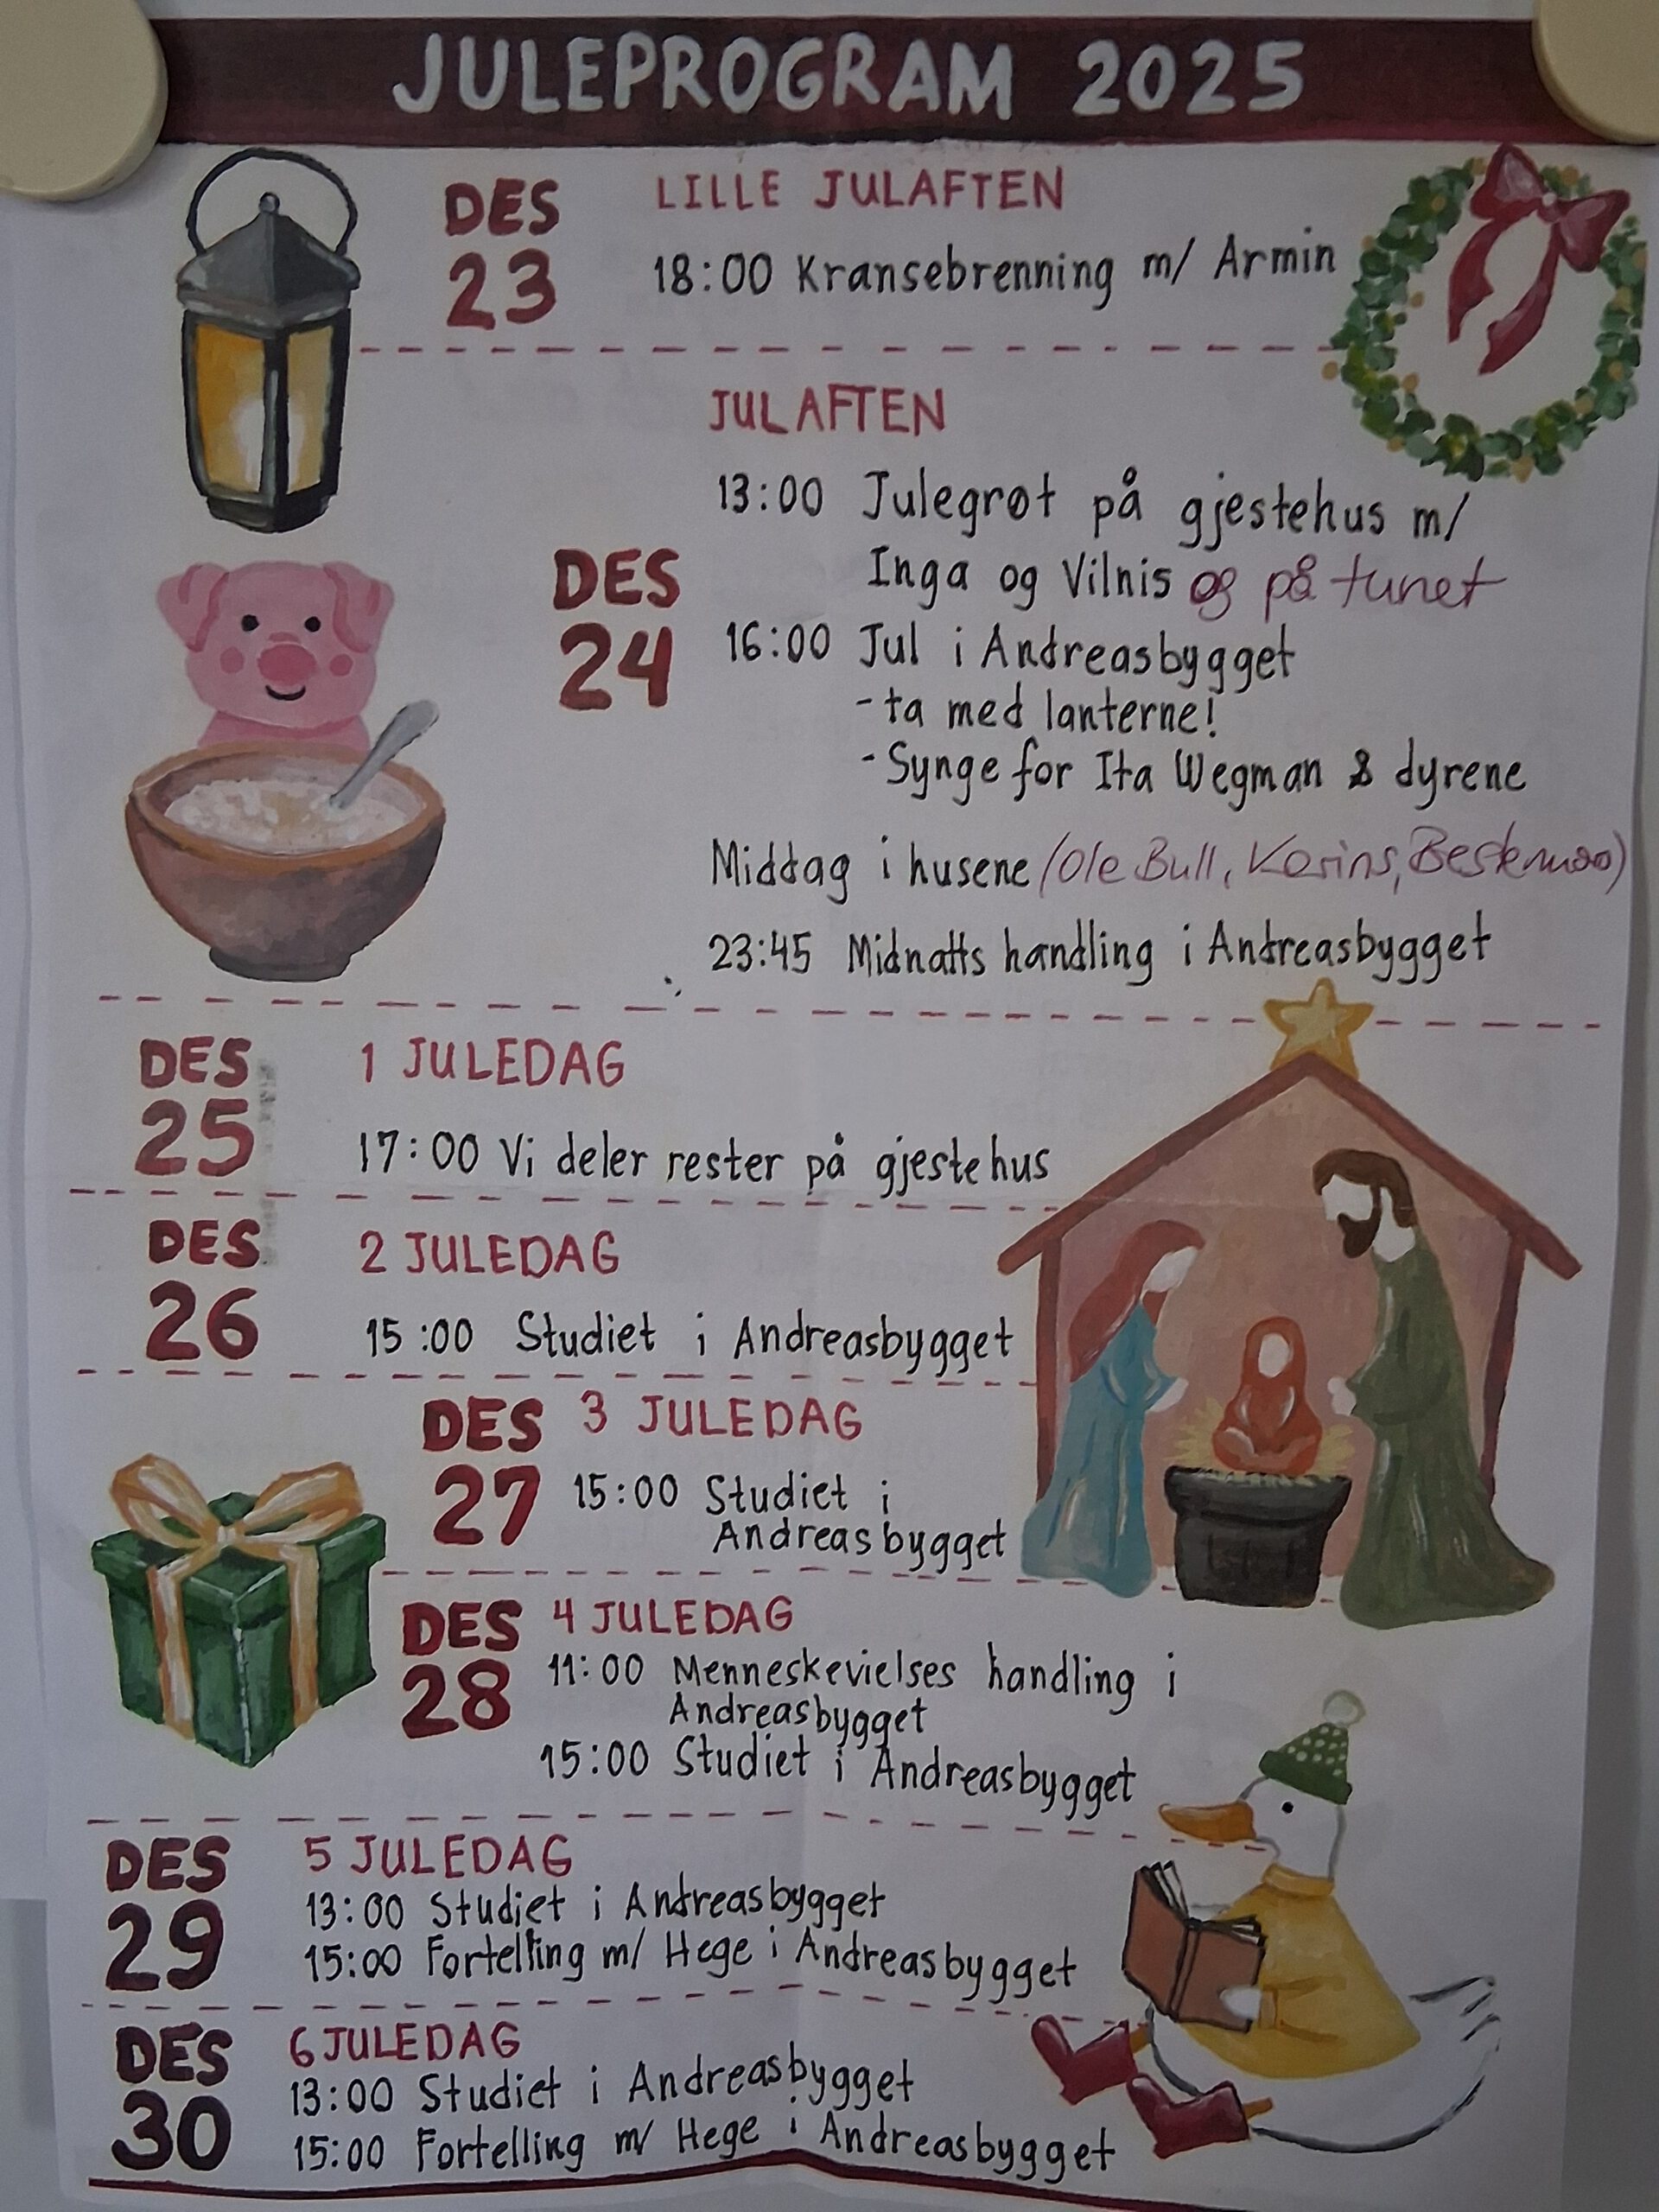 JULEPROGRAM 2025
DES
23
LILLE JULAFTEN
18:00 Kransebrenning m/ Armin
DES
24
JULAFTEN
13:00 Julegrøt på gjestehus m/
Inga og Vilnis og på tunet
16:00 Jul i Andreasbygget
- ta med lanterne!
- Synge for Ita Wegman & dyrene
Middag i husene (Ole Bull, Karins, Bestemor)
23:45 Midnatts handling i Andreasbygget
DES
25
1 JULEDAG
17:00 Vi deler rester på gjestehus
DES
26
2 JULEDAG
15:00 Studiet i Andreasbygget
DES
27
3 JULEDAG
15:00 Studiet i
Andreasbygget
DES
28
4 JULEDAG
11:00 Menneskevielses handling i
Andreasbygget
15:00 Studiet i Andreasbygget
DES
29
5 JULEDAG
13:00 Studiet i Andreasbygget
15:00 Fortelling m/ Hege i Andreasbygget
DES
30
6 JULEDAG
13:00 Studiet i Andreasbygget
15:00 Fortelling m/ Hege i Andreasbygget